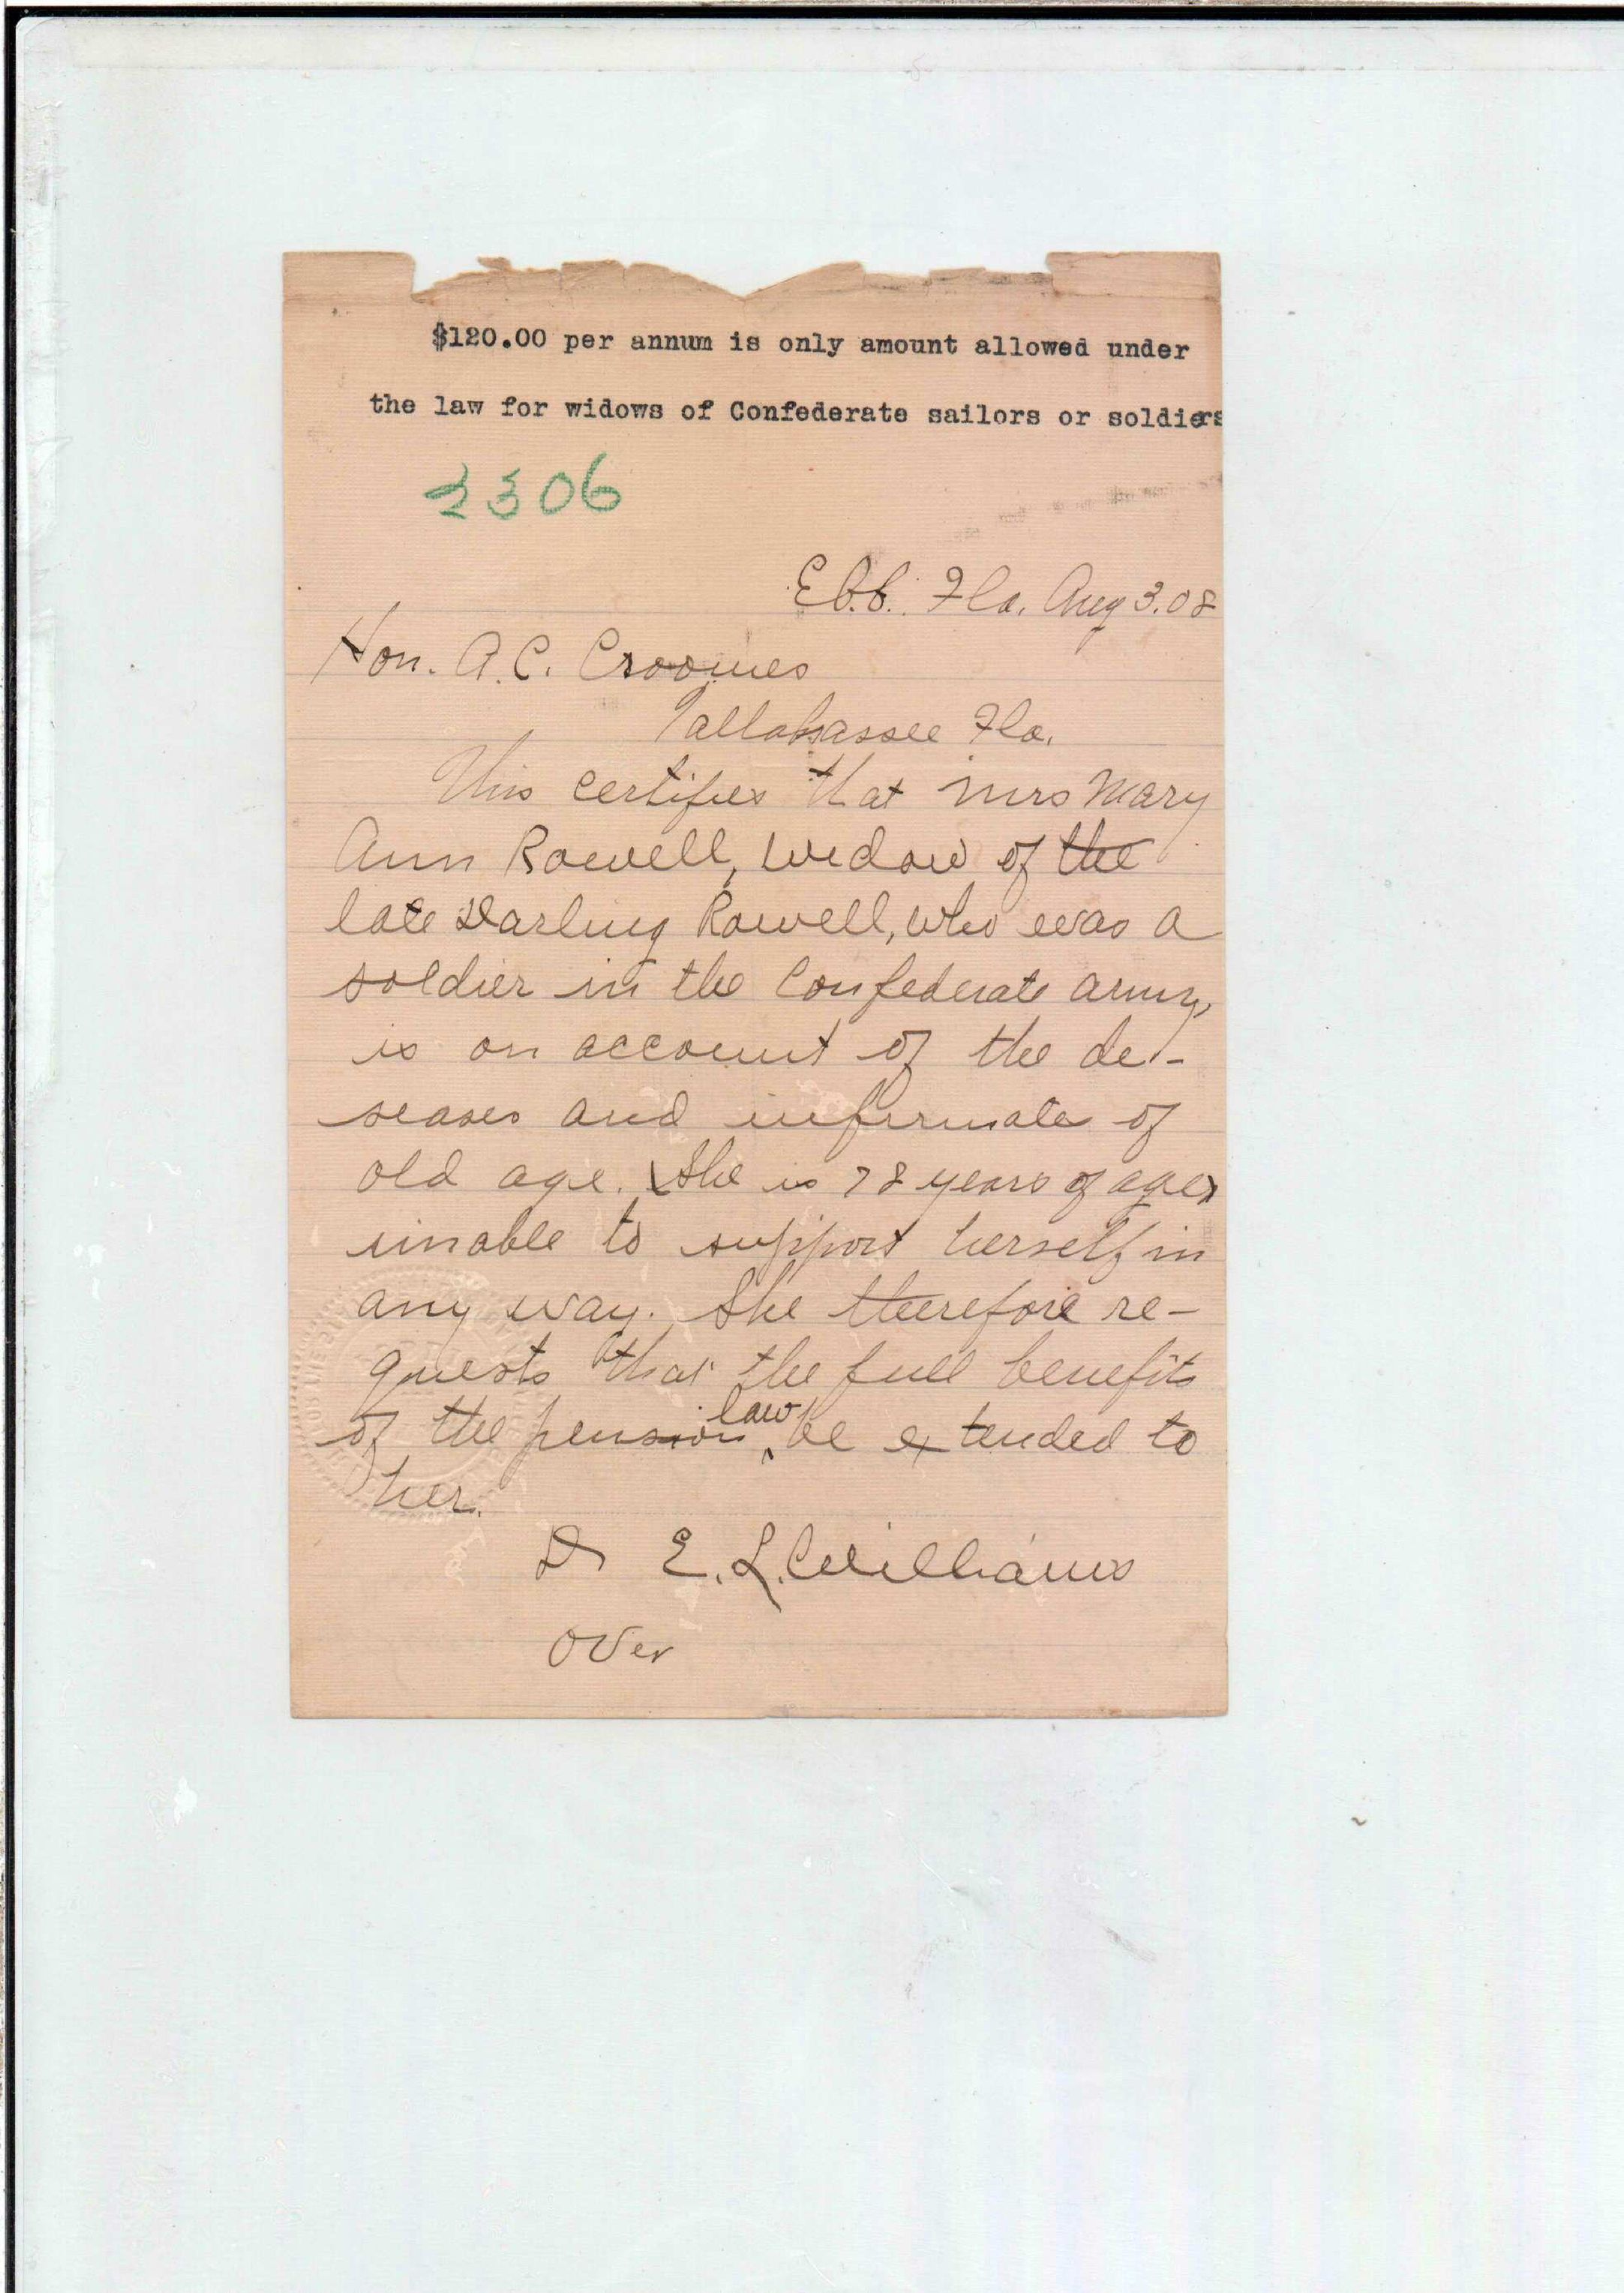 $120.00 per annum is only amount allowed under
the law for widows of Confederate sailors or soldiers
2306
Ebb. Fla. Aug 3.08
Hon. A.C. Croomes
Tallahassee Fla.
This certifies that Mrs Mary
Ann Rowell, widow of the
late Darling Rowell, who was a
soldier in the Confederate army,
is on account of the de-
seases and infirmate of
old age. She is 78 years of age,
unable to support herself in
any way. She therefore re-
quests that the full benefits
of the pension law be extended to
her.
Dr E. L. Williams
over